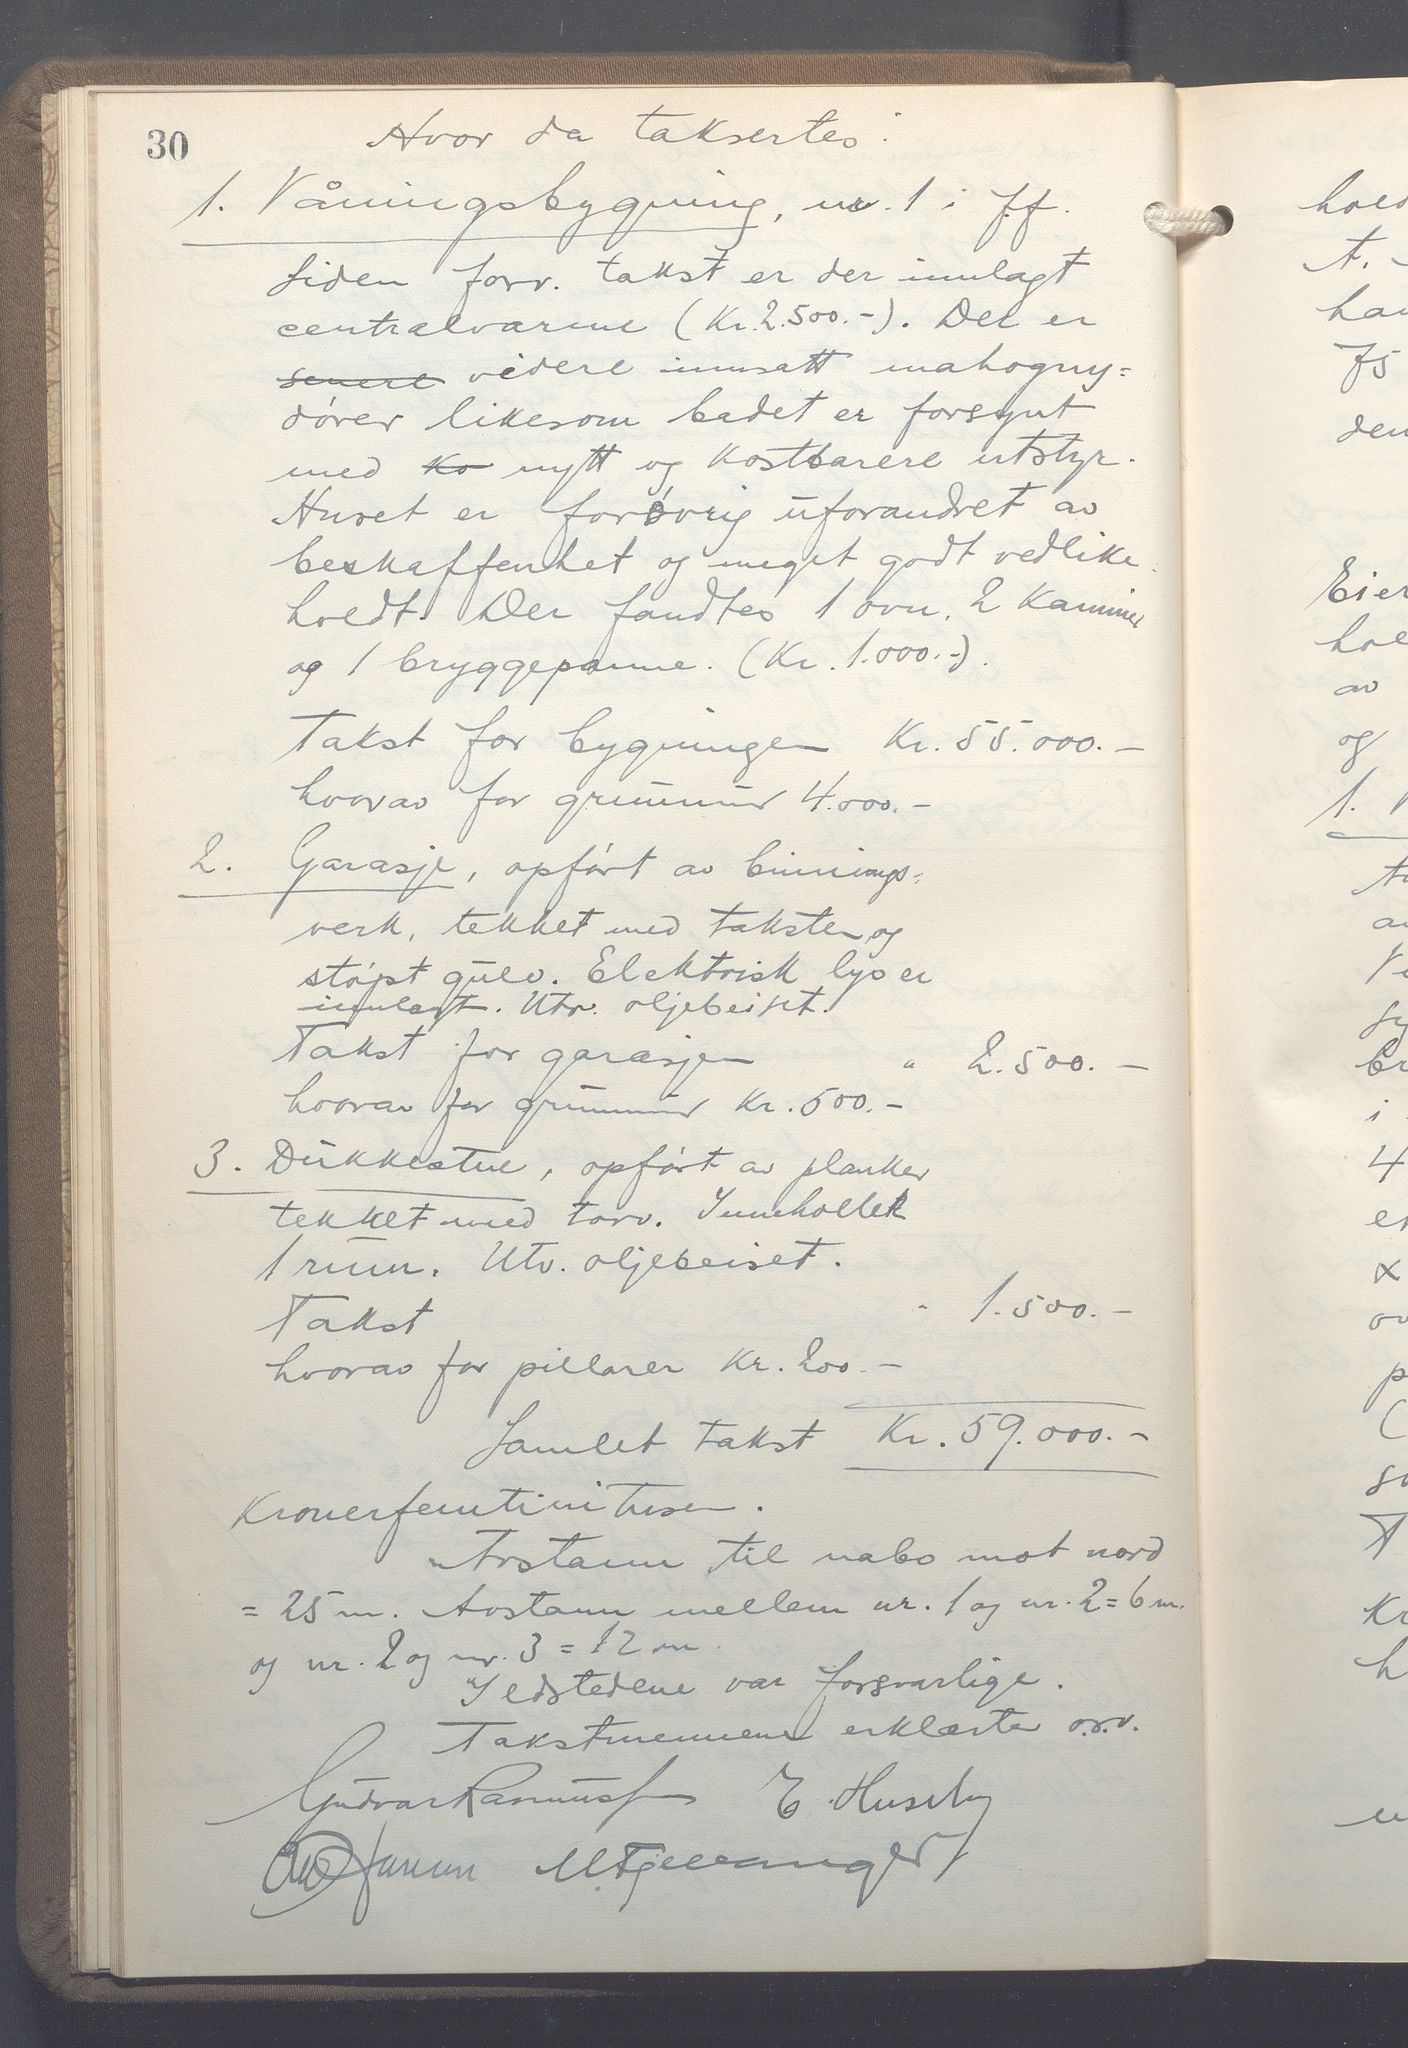 30
Hvor da taksertes:
1. Våningsbygning, nr. 1 i ff.
Siden forr. takst er der innlagt
centralvarme (Kr. 2.500.-). Der er
senere videre innsatt mahogny=
dører likesom badet er forsynt
med ko nytt og kostbarere utstyr.
Huset er forøvrig uforandret av
beskaffenhet og meget godt vedlike
holdt. Der fandtes 1 ovn, 2 Kaminer
og 1 bryggepanne. (Kr. 1.000.-).
Takst for bygningen Kr. 55.000.-
hvorav for grunmur 4.000.-
2. Garasje, opført av binnings=
verk, tekket med taksten og
støpt gulv. Elektrisk lys er
innlagt. Utv. oljebeiset.
Takst for garasjen " 2.500.-
hvorav for grunmur Kr. 500.-
3. Dukkestue, opført av planker
tekket med torv. Inneholder
1 rum. Utv. oljebeiset.
Takst " 1.500.-
hvorav for pillarer Kr. 200.-
Samlet takst Kr. 59.000.-
Kronerfemtinitusen.
Avstann til nabo mot nord
= 25 m. Avstann mellem nr. 1 og nr. 2 = 6 m.
og nr. 2 og nr. 3 = 12 m.
Ildstedene var forsvarlige.
Takstmennene erklærte o.s.v.
Gudvar Rasmussen E. Huseby
M. Tjelvanger
hol
A.
ha
75
den
Eier
hol
av
og
1. V
i
4
er
x
ov
p
(
so
T
Kr
h